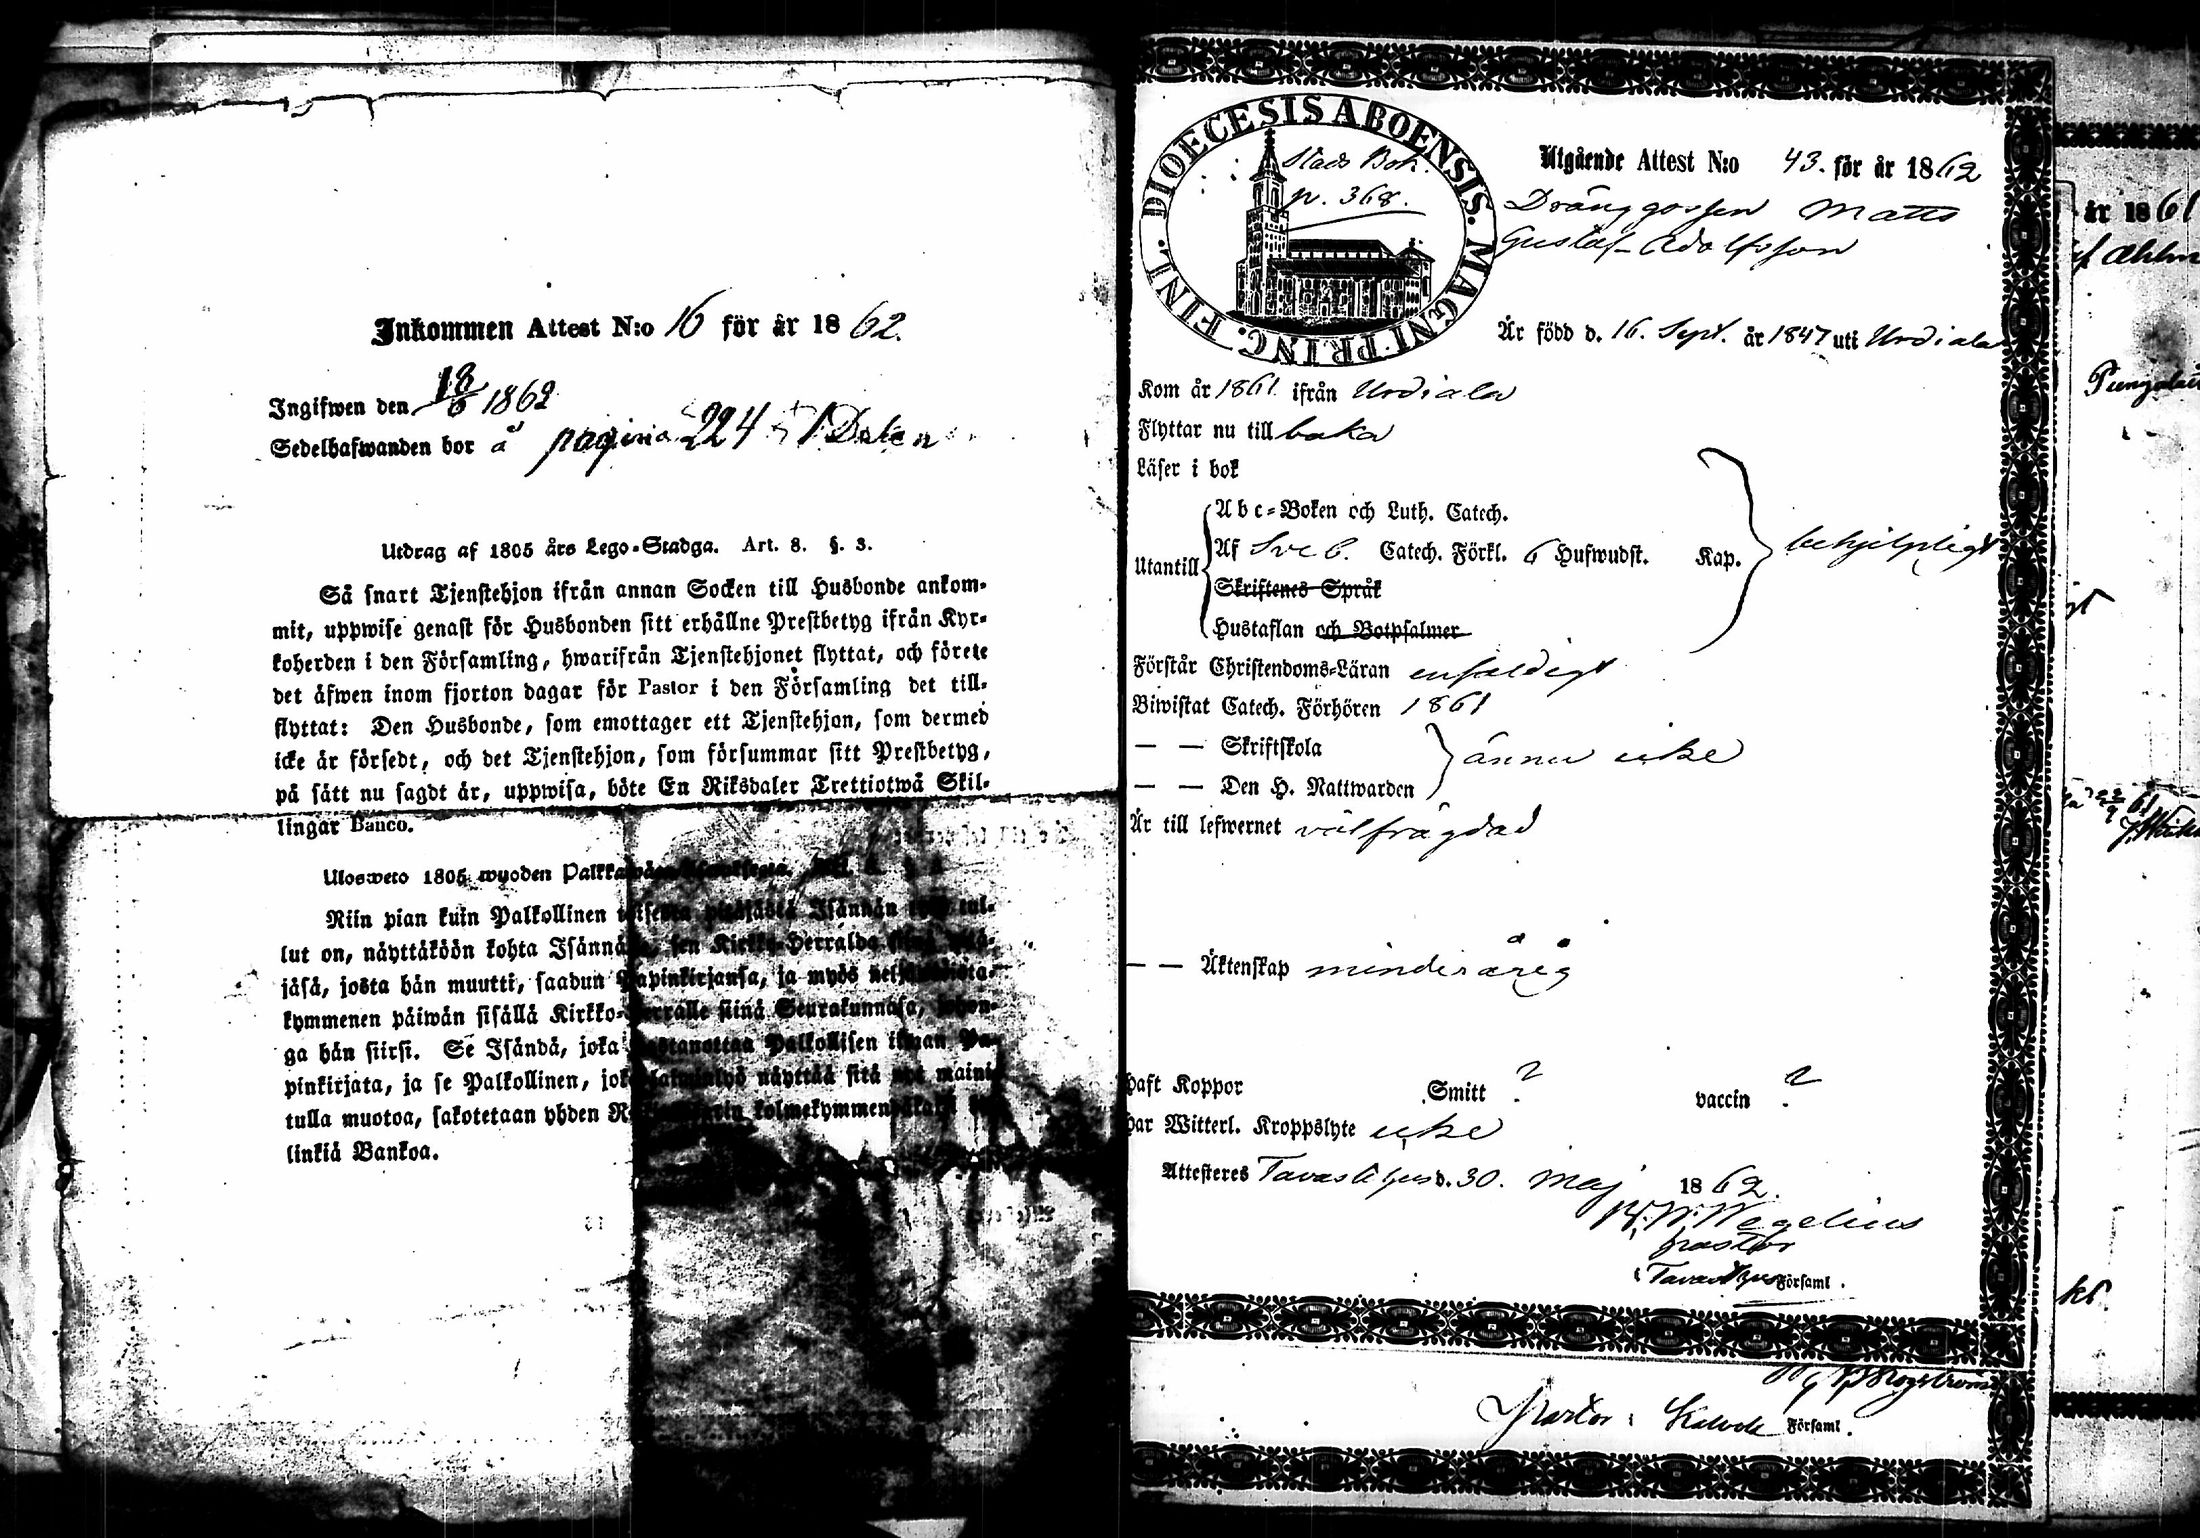 Inkommen Attest N:o 16 för år 1862.
Ingifwen den 18/6 1862
Sedelhafwanden bor å pagina 224
Utdrag af 1805 års Lego-Stadga. Art. 8. §. 3.
Så snart Tjenstehjon ifrån annan Socken till Husbonde ankom-
mit, uppwise genast för Husbonden sitt erhållne Prestbetyg ifrån Kyr-
koherden i den Församling, hwarifrån Tjenstehjonet flyttat, och förete
det äfwen inom fjorton dagar för Pastor i den Församling det till-
flyttat: Den Husbonde, som emottager ett Tjenstehjon, som dermed
icke är försedt, och det Tjenstehjon, som försummar sitt Prestbetyg,
på sätt nu sagdt är, uppwisa, böte En Riksdaler Trettiotwå Skil-
lingar Banco.
Ulosweto 1805 wuoden
Niin pian kuin Palkollinen Isännän tul-
lut on, näyttäköön kohta sen Kirkko-Herralda
jäsä, josta hän muutti, saadun Papinkirjansa, ja myös
kymmenen päiwän sisällä Kirkko-Herralle siinä Seurakunnasa, johon-
ga hän siirsi. Se Isändä, joka wastanottaa Palkollisen ilman Pa-
pinkirjata, ja se Palkollinen, joka näyttää sitä nyt maini-
tulla muotoa, sakotetaan yhden kolmekymmentäkaksi
linkiä Bankoa.
DIOECESIS ABOENSIS. MAGNI PRINC. FINL.
Stads Bok.
p. 368.
Utgående Attest N:o 43. för år 1862
Dränggossen Matts
Gustaf Adolfsson
Är född d. 16. Sept. år 1847 uti Urdiala
Kom år 1861 ifrån Urdiala
Flyttar nu till baka
Läser i bok
Utantill
Abc-Boken och Luth. Catech.
Af Sveb. Catech. Förkl. 6 Hufwudst. Kap.
behjelpligt
Skriftenes Språk
Hustaflan och Botpsalmer
Förstår Christendoms-Läran enfaldigt
Biwistat Catech. Förhören 1861
— — Skriftskola
ännu icke
— — Den H. Nattwarden
Är till lefwernet välfrägdad
— — Äktenskap minderårig
Haft Koppor Smitt ? vaccin ?
Har Witterl. Kroppslyte icke
Attesteres Tavastehus d. 30. Maj 1862.
Wegelius
pastor
i Tavastehus Församl.
Pastor i Kalvola Församl.
år 1861